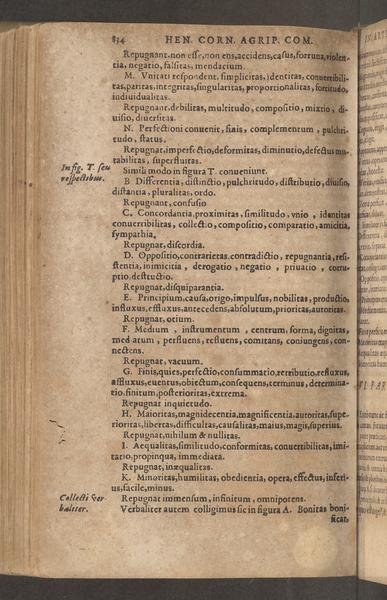 834 HEN. CORN. AGRIP. COM.
Repugnant. non esse, non ens, accidens, casus, fortuna, violen-
tia, negatio, falsitas, mendacium.
M. Vnitati respondent, simplicitas, identitas, conuertibili-
tas, paritas, integritas, singularitas, proportionalitas, fortitudo,
indiuidualitas.
Repugnant, debilitas, multitudo, compositio, mixtio, di-
uisio, diuersitas.
N. Perfectioni conuenit, finis, complementum, pulchri-
tudo, status.
Repugnat, imperfectio, deformitas, diminutio, defectus mu-
tabilitas, superfluitas.
In fig. T. seu
respectibus.
Simili modo in figura T. conueniunt.
B Differentia, distinctio, pulchritudo, distributio, diuisio,
distantia, pluralitas, ordo.
Repugnant, confusio
C. Concordantia, proximitas, similitudo, vnio, identitas
conuertibilitas, collectio, compositio, comparatio, amicitia,
sympathia.
Repugnat, discordia.
D. Oppositio, contrarietas, contradictio, repugnantia, resi-
stentia, inimicitia, derogatio, negatio, priuatio, corru-
ptio, destructio.
Repugnat, disquiparantia.
E. Principium, causa, origo, impulsus, nobilitas, productio,
influxus, effluxus, antecedens, absolutum, prioritas, autoritas.
Repugnat, otium.
F. Medium, instrumentum, centrum, forma, dignitas,
mediatum, perfluens, refluens, comitans, coniungens, con-
nectens.
Repugnat, vacuum.
G. Finis, quies, perfectio, consummatio, retributio, refluxus,
affluxus, euentus, obiectum, consequens, terminus, determina-
tio, finitum, posterioritas, extrema.
Repugnat inquietudo.
H. Maioritas, magnidecentia, magnificentia, autoritas, supe-
rioritas, libertas, difficultas, causalitas, maius, magis, superius.
Repugnat, nihilum & nullitas.
I. Aequalitas, similitudo, conformitas, conuertibilitas, imi-
tatio, propinqua, immediata.
Repugnat, inæqualitas.
K. Minoritas, humilitas, obedientia, opera, effectus, inferi-
us, facile, minus.
Repugnat immensum, infinitum, omnipotens.
Collecti ver-
baliter.
Verbaliter autem colligimus sic in figura A. Bonitas boni-
ficat,